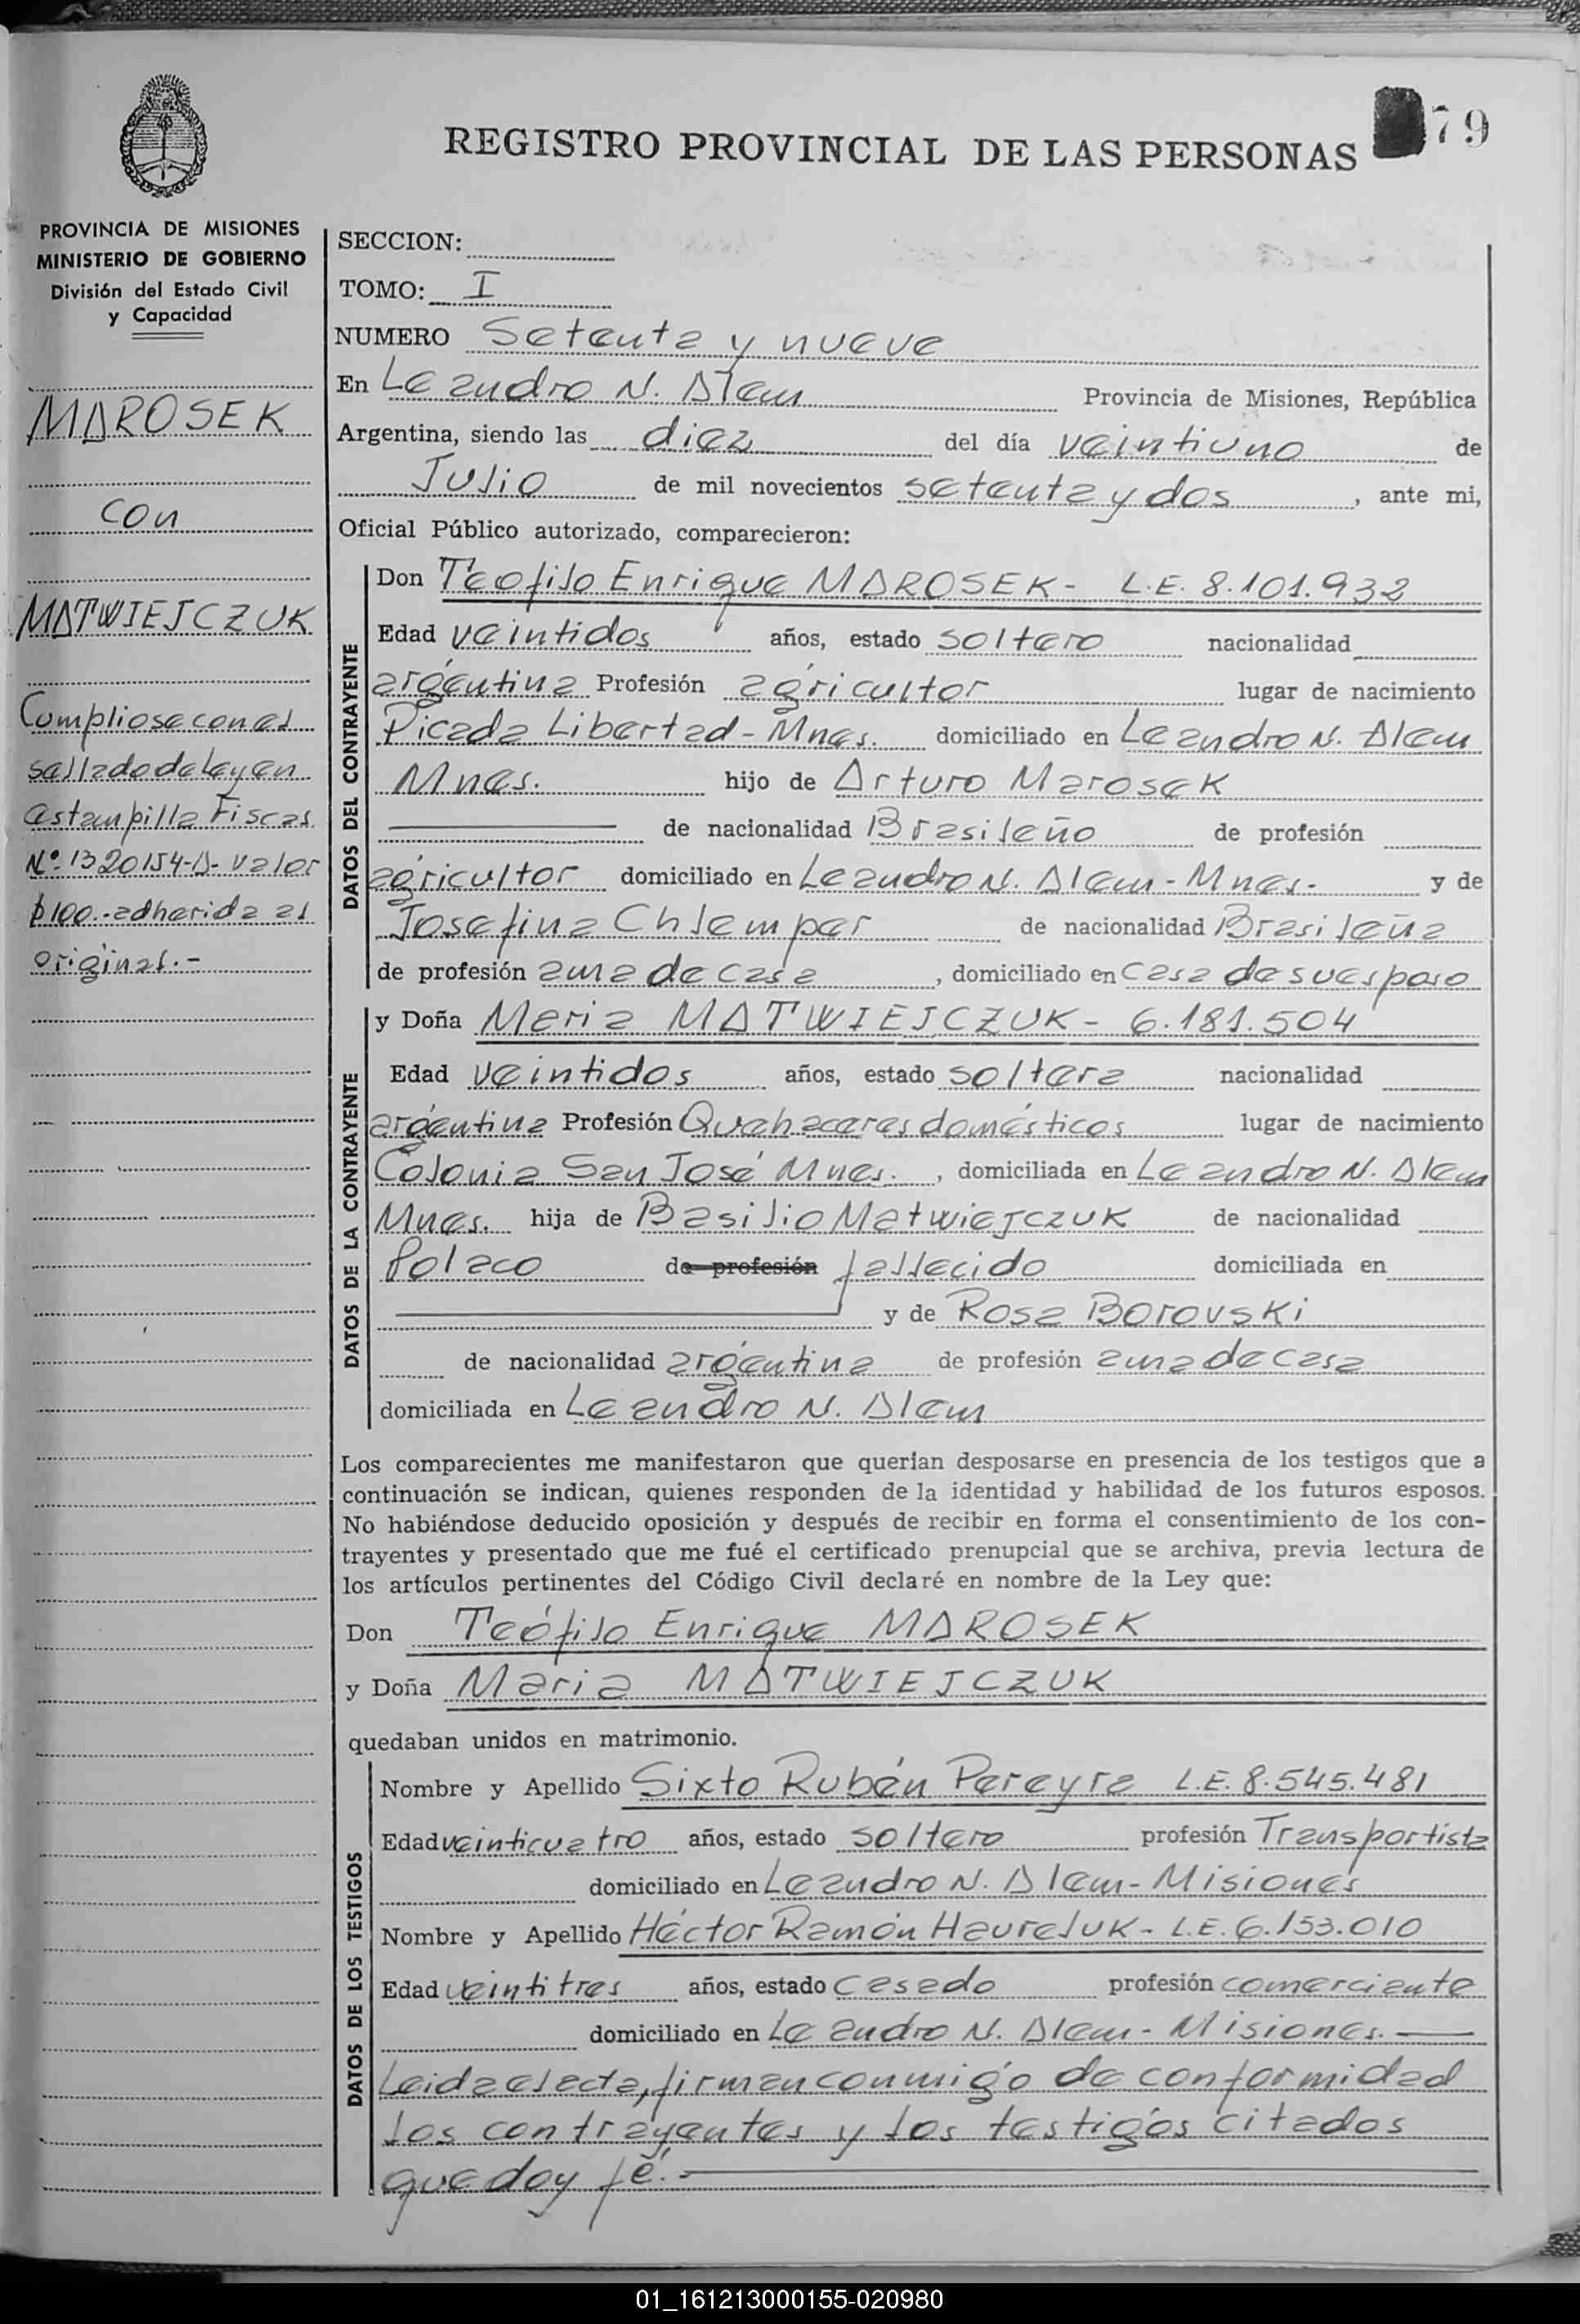 79
REGISTRO PROVINCIAL DE LAS PERSONAS
PROVINCIA DE MISIONES
MINISTERIO DE GOBIERNO
División del Estado Civil
y Capacidad
MAROSEK
con
MATWIEJCZUK
Cumpliose con el
sellado de ley en
estampilla Fiscal
Nº 1320154-D- valor
$100.- adherida al
original.-
SECCION:
TOMO: I
NUMERO Setenta y nueve
En Leandro N. Alem Provincia de Misiones, República
Argentina, siendo las diez del día veintiuno de
Julio de mil novecientos setenta y dos, ante mi,
Oficial Público autorizado, comparecieron:
DATOS DEL CONTRAYENTE
Don Teofilo Enrique MAROSEK - L.E. 8.101.932
Edad veintidos años, estado soltero nacionalidad
argentina Profesión agricultor lugar de nacimiento
Picada Libertad - Mnes. domiciliado en Leandro N. Alem
Mnes. hijo de Arturo Marosek
de nacionalidad Brasileño de profesión
agricultor domiciliado en Leandro N. Alem - Mnes.- y de
Josefina Chlemper de nacionalidad Brasileña
de profesión ama de casa, domiciliado en casa de su esposo
DATOS DE LA CONTRAYENTE
y Doña Maria MATWIEJCZUK - 6.181.504
Edad veintidos años, estado soltera nacionalidad
argentina Profesión Quehaceres domésticos lugar de nacimiento
Colonia San José Mnes., domiciliada en Leandro N. Alem
Mnes. hija de Basilio Matwiejczuk de nacionalidad
Polaco de profesión fallecido domiciliada en
y de Rosa Borovski
de nacionalidad argentina de profesión ama de casa
domiciliada en Leandro N. Alem
Los comparecientes me manifestaron que querían desposarse en presencia de los testigos que a
continuación se indican, quienes responden de la identidad y habilidad de los futuros esposos.
No habiéndose deducido oposición y después de recibir en forma el consentimiento de los con-
trayentes y presentado que me fué el certificado prenupcial que se archiva, previa lectura de
los artículos pertinentes del Código Civil declaré en nombre de la Ley que:
Don Teófilo Enrique MAROSEK
y Doña Maria MATWIEJCZUK
quedaban unidos en matrimonio.
DATOS DE LOS TESTIGOS
Nombre y Apellido Sixto Rubén Pereyra L.E. 8.545.481
Edad veinticuatro años, estado soltero profesión Transportista
domiciliado en Leandro N. Alem - Misiones
Nombre y Apellido Héctor Ramón Haureluk - L.E. 6.153.010
Edad veintitres años, estado casado profesión comerciante
domiciliado en Leandro N. Alem - Misiones.
Leida el acta, firman conmigo de conformidad
los contrayentes y los testigos citados
que doy fé.-
01_161213000155-020980